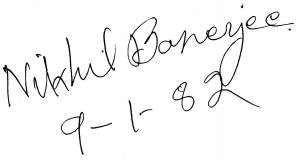 Nikhil Banerjee.
9-1-82